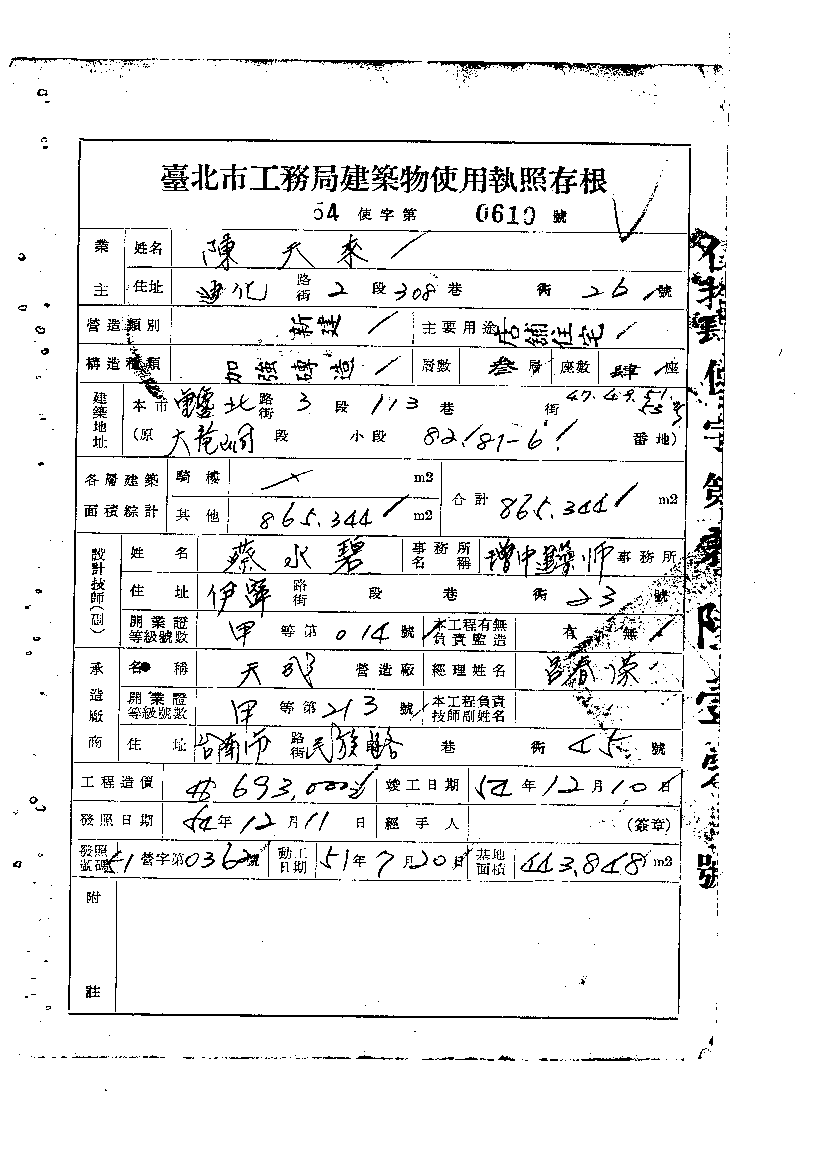 臺北市工務局建築物使用執照存根
54 使字第 0610 號
業主 姓名 陳天來
住址 迪化 路街 2 段 308 巷 街 26 號
營造類別 新建 主要用途 店舖住宅
構造種類 加強磚造 層數 叁 層 座數 肆 座
建築地址 本市 重慶北 路街 3 段 113 巷 街 47.49.51.53號
(原 大龍峒 段 小段 82.81-6 番地)
各層建築面積綜計 騎樓 m2 合計 865.344 m2
其他 865.344 m2
設計技師(副) 姓名 蔡水碧 事務所名稱 增中建築師 事務所
住址 伊寧 路街 段 巷 街 23 號
開業證等級號數 甲 等第 014 號 本工程有無負責監造 有 無
承造廠商 名稱 天成 營造廠 經理姓名 呂春
開業證等級號數 甲 等第 213 號 本工程負責技師副姓名
住址 台南市 路街 民族路 巷 街 45 號
工程造價 693,000元 竣工日期 54 年 12 月 10 日
發照日期 54 年 12 月 11 日 經手人 (簽章)
發照號碼 51 營字第 0362 號 動工日期 51 年 7 月 20 日 基地面積 443.848 m2
附註